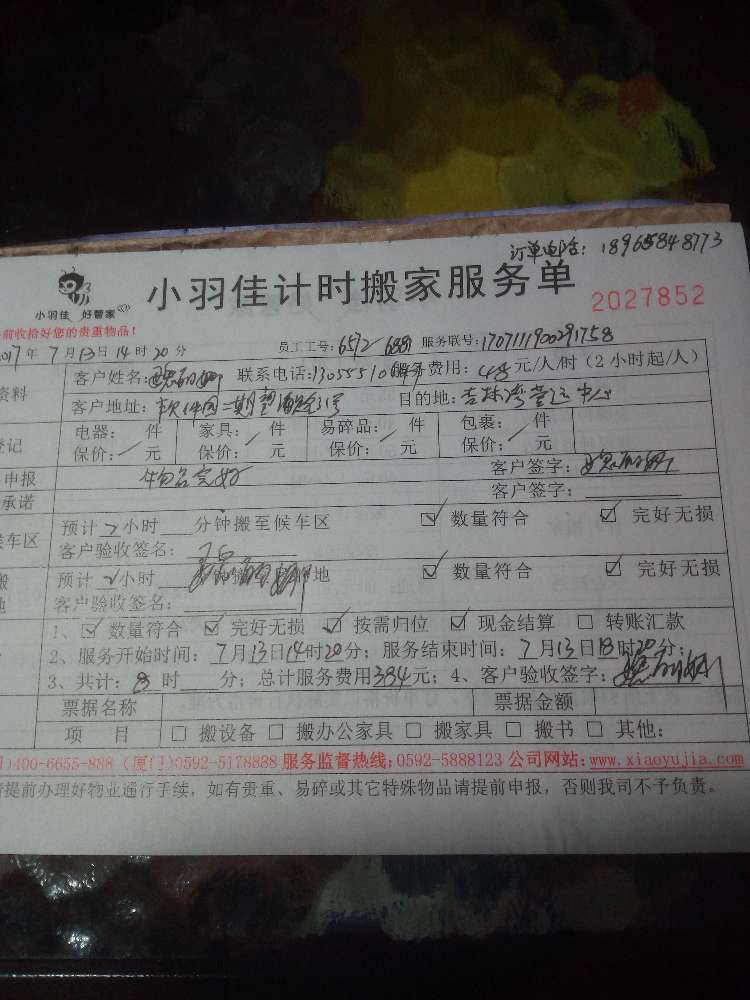 订单电话：18965848773
小羽佳 好管家
小羽佳计时搬家服务单
2027852
前收拾好您的贵重物品！
2017年7月13日14时20分 员工工号：6592 6881 服务联号：1707111900291758
资料 客户姓名： 联系电话：130555104 费用：48元/人/时（2小时起/人）
客户地址：软件园二期望海路31号 目的地：吉林湾营运中心
登记 电器：件 家具：件 易碎品：件 包裹：件
保价：元 保价：元 保价：元 保价：元
申报 物品完好 客户签字：
承诺 客户签字：
候车区 预计2小时 分钟搬至候车区 ☑数量符合 ☑完好无损
客户验收签名：
搬 预计2小时 地 ☑数量符合 ☑完好无损
地 客户验收签名：
1、☑数量符合 ☑完好无损 ☑按需归位 ☑现金结算 □转账汇款
2、服务开始时间：7月13日14时20分；服务结束时间：7月13日18时20分；
3、共计：8时 分；总计服务费用384元；4、客户验收签字：
票据名称 票据金额
项目 □搬设备 □搬办公家具 □搬家具 □搬书 □其他：
)400-6655-888（厦门)0592-5178888 服务监督热线：0592-5888123 公司网站：www.xiaoyujia.com
请提前办理好物业通行手续，如有贵重、易碎或其它特殊物品请提前申报，否则我司不予负责。